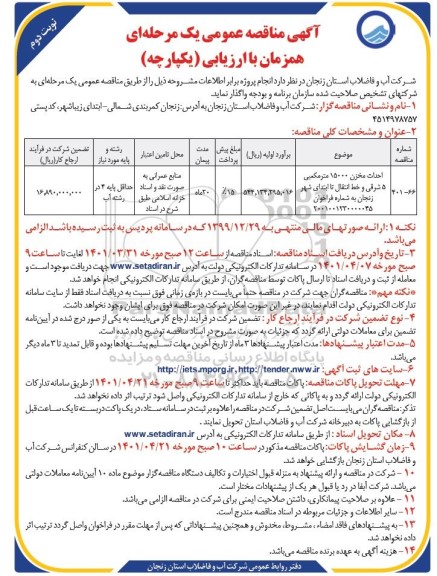 نوبت دوم
آگهی مناقصه عمومی یک مرحله‌ای
همزمان با ارزیابی (یکپارچه)
شرکت آب و فاضلاب استان زنجان در نظر دارد انجام پروژه برابر اطلاعات مشروحه ذیل را از طریق مناقصه عمومی یک مرحله‌ای به
شرکتهای تشخیص صلاحیت شده سازمان برنامه و بودجه واگذار نماید.
۱- نام و نشانی مناقصه‌گزار: شرکت آب و فاضلاب استان زنجان به آدرس: زنجان کمربندی شمالی- ابتدای زیباشهر، کد پستی
۴۵۱۴۹۷۸۷۵۷
۲- عنوان و مشخصات کلی مناقصه:
شماره مناقصه | موضوع | برآورد اولیه (ریال) | مبلغ پیش پرداخت | مدت پیمان | محل تامین اعتبار | رشته و پایه مورد نیاز | تضمین شرکت در فرآیند ارجاع کار (ریال)
۴۰۱-۶۶ | احداث مخزن ۱۵۰۰۰ مترمکعبی ۵ شرقی و خط انتقال تا ابتدای شهر زنجان به شماره فراخوان ۲۰۰۱۰۰۱۲۳۰۰۰۰۴۵ | ۵۴۴,۱۳۴,۲۹۵,۰۱۶ | ٪۱۵ | ۲۰ماه | منابع عمرانی به صورت نقد و اسناد خزانه اسلامی طبق شرح در اسناد | حداقل پایه ۴ در رشته آب | ۱۶,۸۹۰,۰۰۰,۰۰۰
نکته ۱: ارائه صورتهای مالی منتهی به ۱۳۹۹/۱۲/۲۹ که در سامانه پردیس به ثبت رسیده باشد الزامی
می‌باشد.
۳- تاریخ و آدرس دریافت اسناد مناقصه: اسناد مناقصه از ساعت ۱۲ صبح مورخه ۱۴۰۱/۰۳/۳۱ لغایت تا ساعت ۹
صبح مورخه ۱۴۰۱/۰۴/۰۷ در سامانه تدارکات الکترونیکی دولت به آدرس www.setadiran.ir جهت دریافت موجود است و
معامله از ثبت و دریافت اسناد تا ارسال پاکات توسط مناقصه‌گران، از طریق سامانه تدارکات الکترونیکی انجام خواهد شد.
«نکته مهم»: مناقصه‌گران جهت شرکت در مناقصه حتماً می‌بایست در بازه‌ی زمانی فوق نسبت به دریافت اسناد فقط از سایت سامانه
تدارکات الکترونیکی دولت اقدام نمایند، در غیر این صورت امکان شرکت در مناقصه فوق برای ایشان وجود نخواهد داشت.
۴- نوع تضمین شرکت در فرآیند ارجاع کار: تضمین شرکت در فرآیند ارجاع کار می‌بایست به یکی از صور درج شده در آیین‌نامه
تضمین برای معاملات دولتی ارائه گردد که جزئیات به صورت مشروح در اسناد مناقصه توضیح داده شده است.
۵- مدت اعتبار پیشنهادها: مدت اعتبار پیشنهادها ۳ ماه از تاریخ آخرین مهلت تسلیم پیشنهادها بوده و قابل تمدید تا ۳ ماه دیگر
می‌باشد.
۶- سایت های ثبت آگهی: http://iets.mporg.ir، http://tender.nww.ir
۷- مهلت تحویل پاکات مناقصه: پاکات مناقصه باید حداکثر تا ساعت ۹ صبح مورخه ۱۴۰۱/۰۴/۲۱ از طریق سامانه تدارکات
الکترونیکی دولت ارائه گردد و به پاکاتی که خارج از سامانه تدارکات الکترونیکی واصل شود ترتیب اثر داده نخواهد شد.
تذکر: مناقصه‌گران می‌بایست اصل تضمین شرکت در مناقصه را علاوه بر ثبت در سامانه ستاد، در یک پاکت دربسته تا یک ساعت قبل
از بازگشایی پاکات به دبیرخانه شرکت آب و فاضلاب استان تحویل نمایند.
۸- مکان تحویل اسناد: از طریق سامانه تدارکات به آدرس www.setadiran.ir
۹- زمان گشایش پاکات: پاکات مناقصه مذکور در ساعت ۱۰ صبح مورخه ۱۴۰۱/۰۴/۲۱ در سالن کنفرانس شرکت آب
و فاضلاب استان زنجان بازگشایی خواهد شد.
۱۰- شرکت در مناقصه و ارائه پیشنهاد به منزله قبول اختیارات و تکالیف دستگاه مناقصه‌گزار موضوع ماده ۱۰ آیین‌نامه معاملات دولتی
می‌باشد. شرکت آبفا در رد یا قبول هر یک از پیشنهادات مختار است.
۱۱- علاوه بر صلاحیت پیمانکاری، داشتن صلاحیت ایمنی برای شرکت در مناقصه الزامی می‌باشد.
۱۲- سایر اطلاعات و جزئیات مربوطه در اسناد مناقصه مندرج است.
۱۳- به پیشنهادهای فاقد امضاء، مشروط، مخدوش و همچنین پیشنهاداتی که پس از مهلت مقرر در فراخوان واصل گردد ترتیب اثر
داده نخواهد شد.
۱۴- هزینه آگهی به عهده برنده مناقصه می‌باشد.
دفتر روابط عمومی شرکت آب و فاضلاب استان زنجان